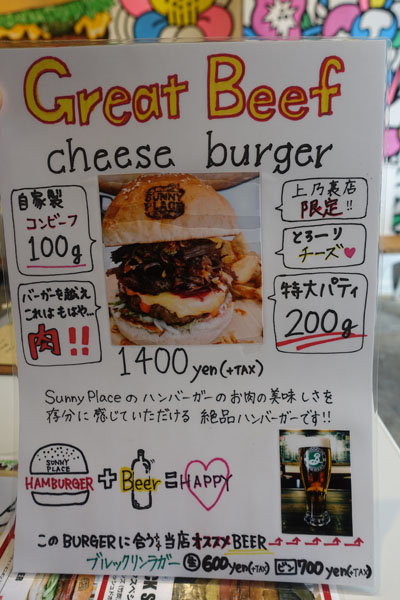 Great Beef
cheese burger
自家製
コンビーフ
100g
SUNNY
PLACE
上乃裏店
限定!!
とろーり
チーズ♥
バーガーを越え
これはもはや…
肉!!
特大パティ
200g
1400yen(+TAX)
Sunny Placeの ハンバーガーのお肉の美味しさを
存分に感じていただける 絶品ハンバーガーです!!
SUNNY
PLACE
HAMBURGER + Beer = HAPPY
このBURGERに合う当店オススメBEER
ブルックリンラガー 生600yen(+TAX) ビン700yen(+TAX)